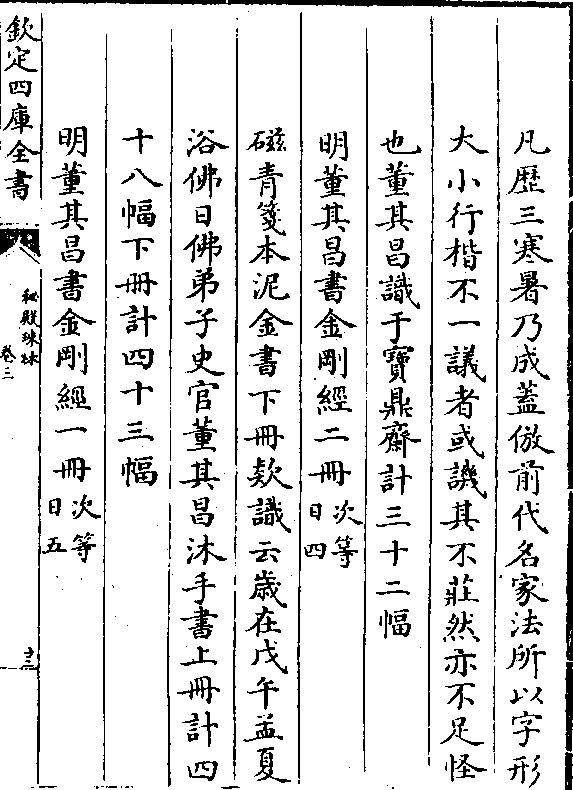 凡歴三寒暑乃成蓋倣前代名家法所以字形
大小行楷不一議者或譏其不莊然亦不足怪
也董其昌識于寶鼎齋計三十二幅
明董其昌書金剛經二冊次等
日四
磁青箋本泥金書下冊欵識云歲在戊午孟夏
浴佛日佛弟子史官董其昌沐手書上冊計四
十八幅下冊計四十三幅
明董其昌書金剛經一冊次等
日五
欽定四庫全書
秘殿珠林
卷三
十三